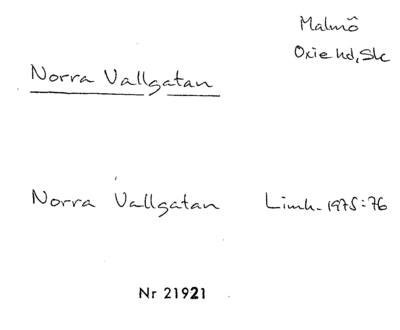 Malmö
Oxie hd, Sk
Norra Vallgatan
Norra Vallgatan Limh. 1975:76
Nr 21921